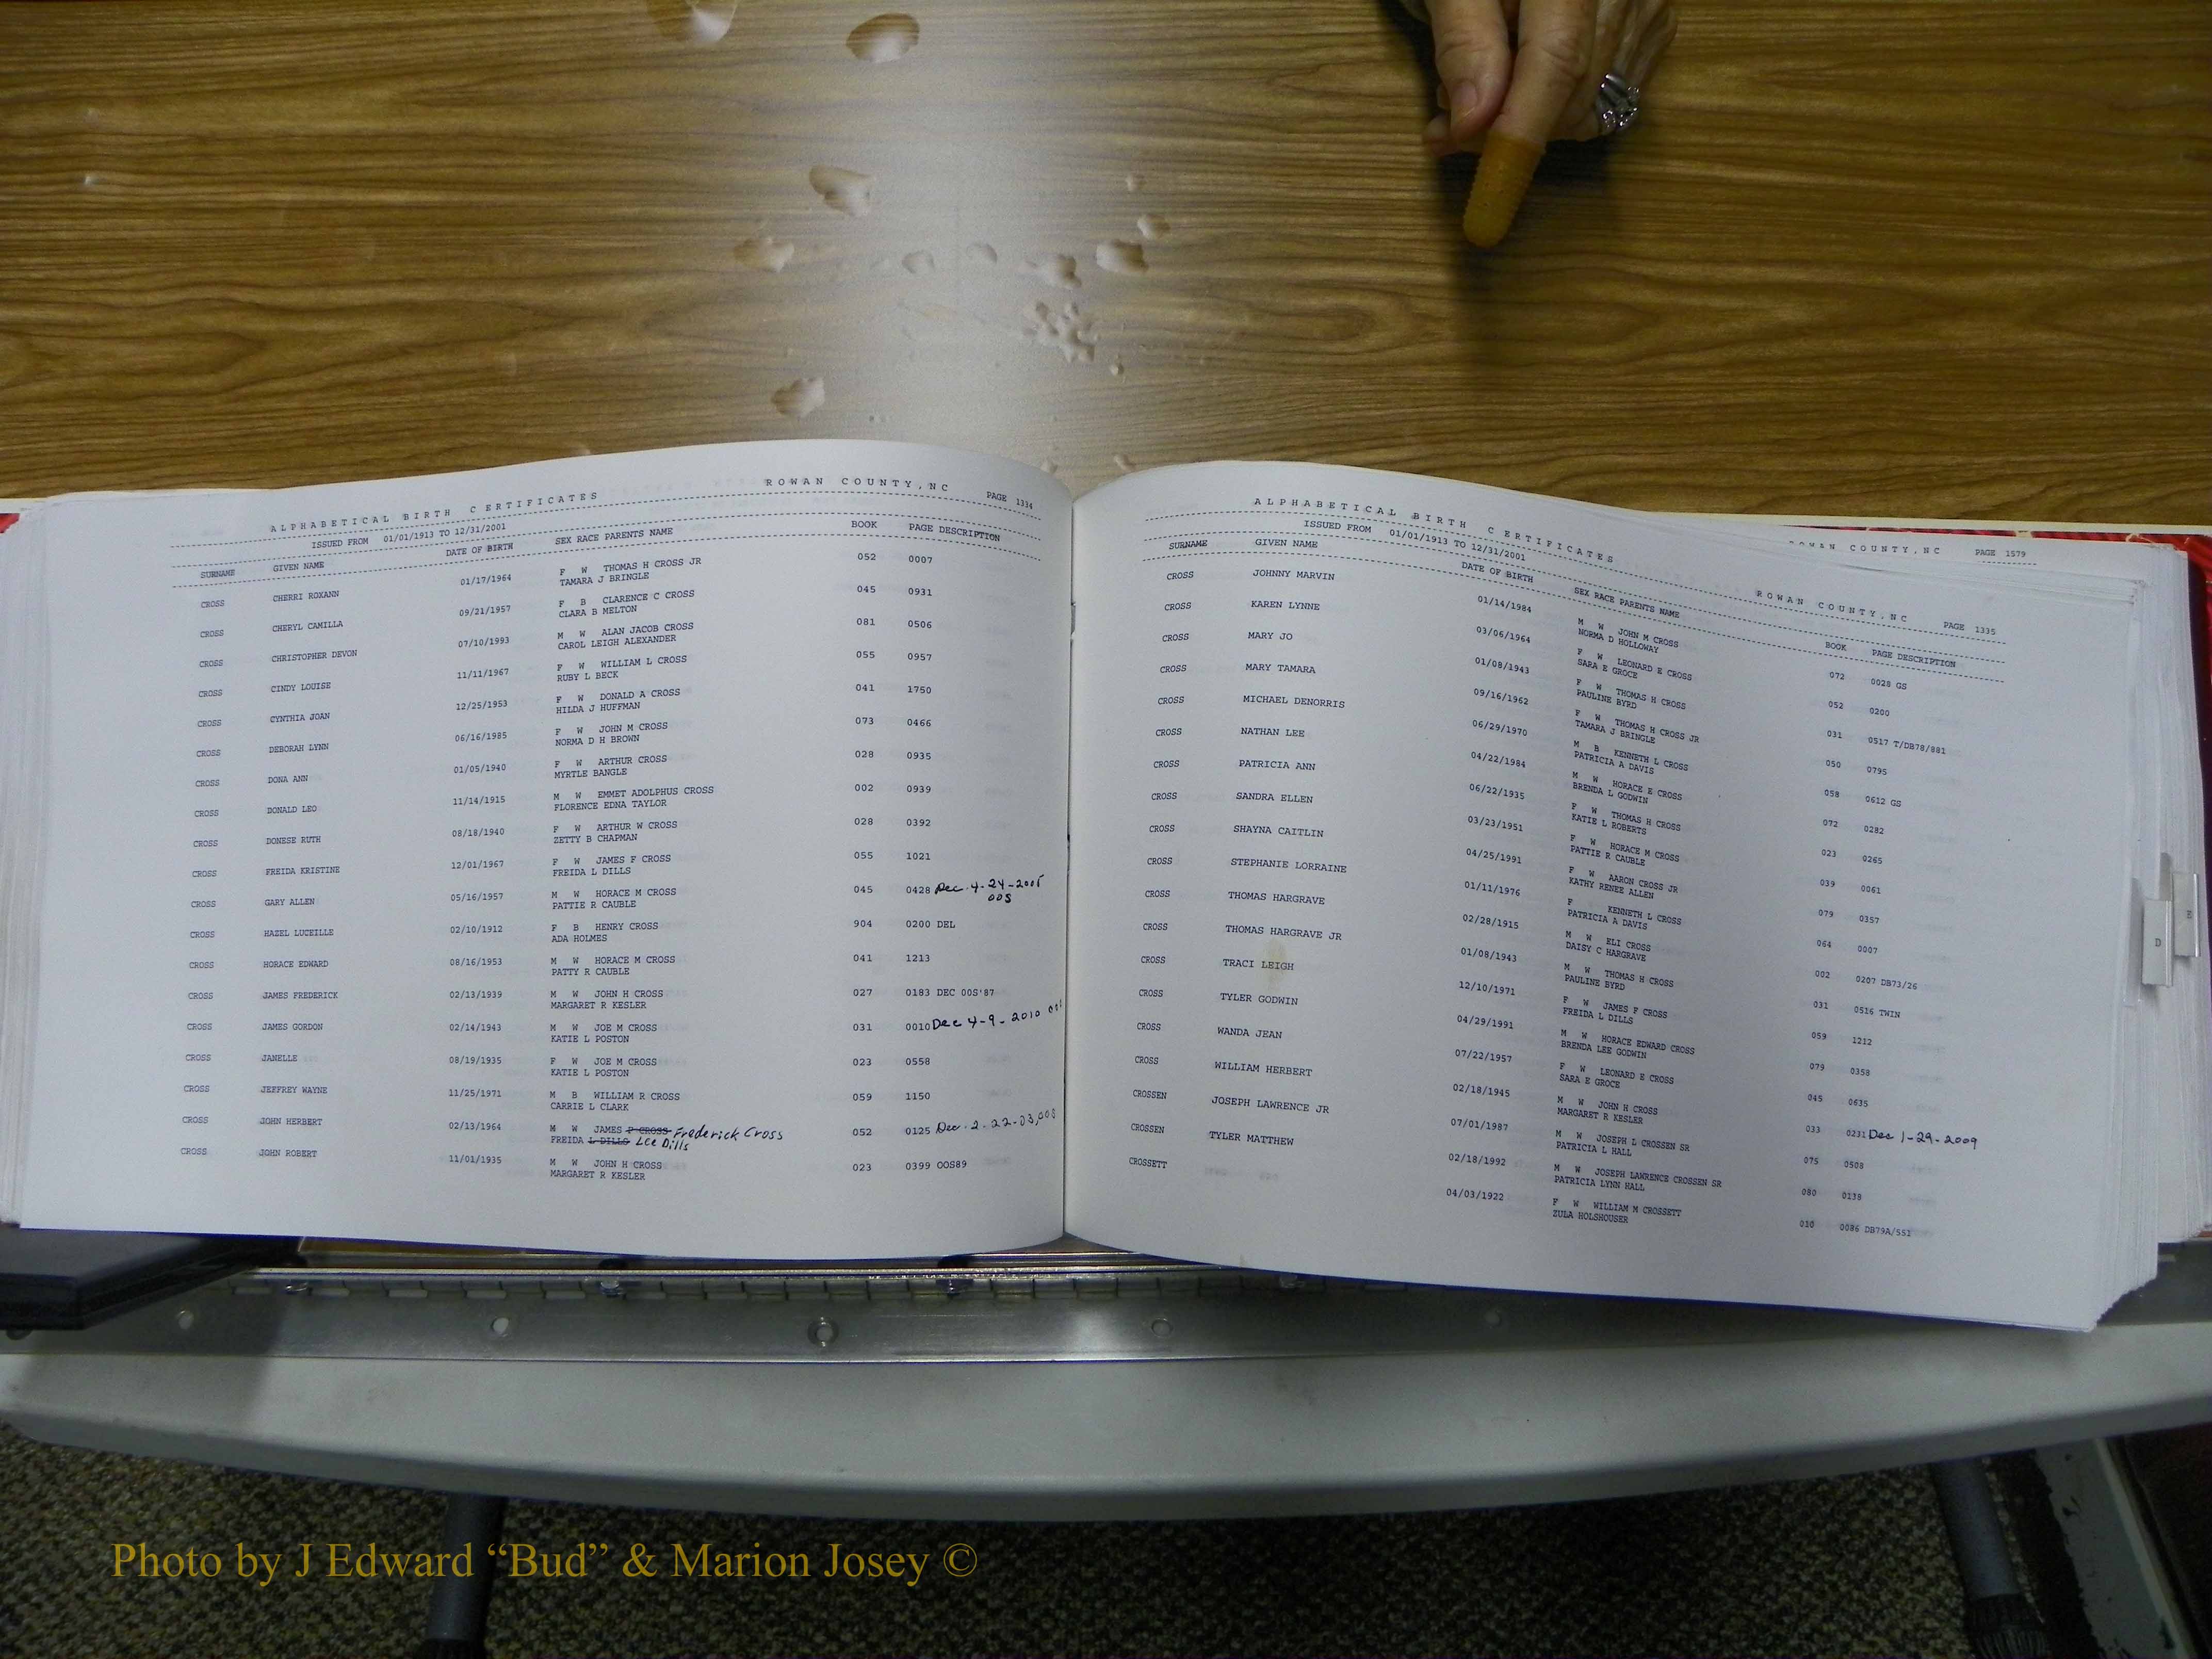 ALPHABETICAL BIRTH CERTIFICATES ROWAN COUNTY, NC PAGE 1334
ISSUED FROM 01/01/1913 TO 12/31/2001
SURNAME GIVEN NAME DATE OF BIRTH SEX RACE PARENTS NAME BOOK PAGE DESCRIPTION
CROSS CHERRI ROXANN 01/17/1964 F W THOMAS H CROSS JR 052 0007
TAMARA J BRINGLE
CROSS CHERYL CAMILLA 09/21/1957 F B CLARENCE C CROSS 045 0931
CLARA B MELTON
CROSS CHRISTOPHER DEVON 07/10/1993 M W ALAN JACOB CROSS 081 0506
CAROL LEIGH ALEXANDER
CROSS CINDY LOUISE 11/11/1967 F W WILLIAM L CROSS 055 0957
RUBY L BECK
CROSS CYNTHIA JOAN 12/25/1953 F W DONALD A CROSS 041 1750
HILDA J HUFFMAN
CROSS DEBORAH LYNN 06/16/1985 F W JOHN M CROSS 073 0466
NORMA D H BROWN
CROSS DONA ANN 01/05/1940 F W ARTHUR CROSS 028 0935
MYRTLE BANGLE
CROSS DONALD LEO 11/14/1915 M W EMMET ADOLPHUS CROSS 002 0939
FLORENCE EDNA TAYLOR
CROSS DONESE RUTH 08/18/1940 F W ARTHUR W CROSS 028 0392
ZETTY B CHAPMAN
CROSS FREIDA KRISTINE 12/01/1967 F W JAMES F CROSS 055 1021
FREIDA L DILLS
CROSS GARY ALLEN 05/16/1957 M W HORACE M CROSS 045 0428 Dec. 4-24-2005
PATTIE R CAUBLE OOS
CROSS HAZEL LUCEILLE 02/10/1912 F B HENRY CROSS 904 0200 DEL
ADA HOLMES
CROSS HORACE EDWARD 08/16/1953 M W HORACE M CROSS 041 1213
PATTY R CAUBLE
CROSS JAMES FREDERICK 02/13/1939 M W JOHN H CROSS 027 0183 DEC OOS'87
MARGARET R KESLER
CROSS JAMES GORDON 02/14/1943 M W JOE M CROSS 031 0010 Dec 4-9-2010
KATIE L POSTON
CROSS JANELLE 08/19/1935 F W JOE M CROSS 023 0558
KATIE L POSTON
CROSS JEFFREY WAYNE 11/25/1971 M B WILLIAM R CROSS 059 1150
CARRIE L CLARK
CROSS JOHN HERBERT 02/13/1964 M W JAMES F CROSS Frederick Cross 052 0125 Dec. 2-22-03, OOS
FREIDA L DILLS Lee Dills
CROSS JOHN ROBERT 11/01/1935 M W JOHN H CROSS 023 0399 OOS89
MARGARET R KESLER
ROWAN COUNTY, NC PAGE 1579
ALPHABETICAL BIRTH CERTIFICATES ROWAN COUNTY, NC PAGE 1335
ISSUED FROM 01/01/1913 TO 12/31/2001
SURNAME GIVEN NAME DATE OF BIRTH SEX RACE PARENTS NAME BOOK PAGE DESCRIPTION
CROSS JOHNNY MARVIN 01/14/1984 M W JOHN M CROSS 072 0028 GS
NORMA D HOLLOWAY
CROSS KAREN LYNNE 03/06/1964 F W LEONARD E CROSS 052 0200
SARA E GROCE
CROSS MARY JO 01/08/1943 F W THOMAS H CROSS 031 0517 T/DB78/881
PAULINE BYRD
CROSS MARY TAMARA 09/16/1962 F W THOMAS H CROSS JR 050 0795
TAMARA J BRINGLE
CROSS MICHAEL DENORRIS 06/29/1970 M B KENNETH L CROSS 058 0612 GS
PATRICIA A DAVIS
CROSS NATHAN LEE 04/22/1984 M W HORACE E CROSS 072 0282
BRENDA L GODWIN
CROSS PATRICIA ANN 06/22/1935 F W THOMAS H CROSS 023 0265
KATIE L ROBERTS
CROSS SANDRA ELLEN 03/23/1951 F W HORACE M CROSS 039 0061
PATTIE R CAUBLE
CROSS SHAYNA CAITLIN 04/25/1991 F W AARON CROSS JR 079 0357
KATHY RENEE ALLEN
CROSS STEPHANIE LORRAINE 01/11/1976 F KENNETH L CROSS 064 0007
PATRICIA A DAVIS
CROSS THOMAS HARGRAVE 02/28/1915 M W ELI CROSS 002 0207 DB73/26
DAISY C HARGRAVE
CROSS THOMAS HARGRAVE JR 01/08/1943 M W THOMAS H CROSS 031 0516 TWIN
PAULINE BYRD
CROSS TRACI LEIGH 12/10/1971 F W JAMES F CROSS 059 1212
FREIDA L DILLS
CROSS TYLER GODWIN 04/29/1991 M W HORACE EDWARD CROSS 079 0358
BRENDA LEE GODWIN
CROSS WANDA JEAN 07/22/1957 F W LEONARD E CROSS 045 0635
SARA E GROCE
CROSS WILLIAM HERBERT 02/18/1945 M W JOHN H CROSS 033 0231 Dec 1-29-2009
MARGARET R KESLER
CROSSEN JOSEPH LAWRENCE JR 07/01/1987 M W JOSEPH L CROSSEN SR 075 0508
PATRICIA L HALL
CROSSEN TYLER MATTHEW 02/18/1992 M W JOSEPH LAWRENCE CROSSEN SR 080 0138
PATRICIA LYNN HALL
CROSSETT 04/03/1922 F W WILLIAM M CROSSETT 010 0086 DB79A/551
ZULA HOLSHOUSER
D
E
Photo by J Edward “Bud” & Marion Josey ©